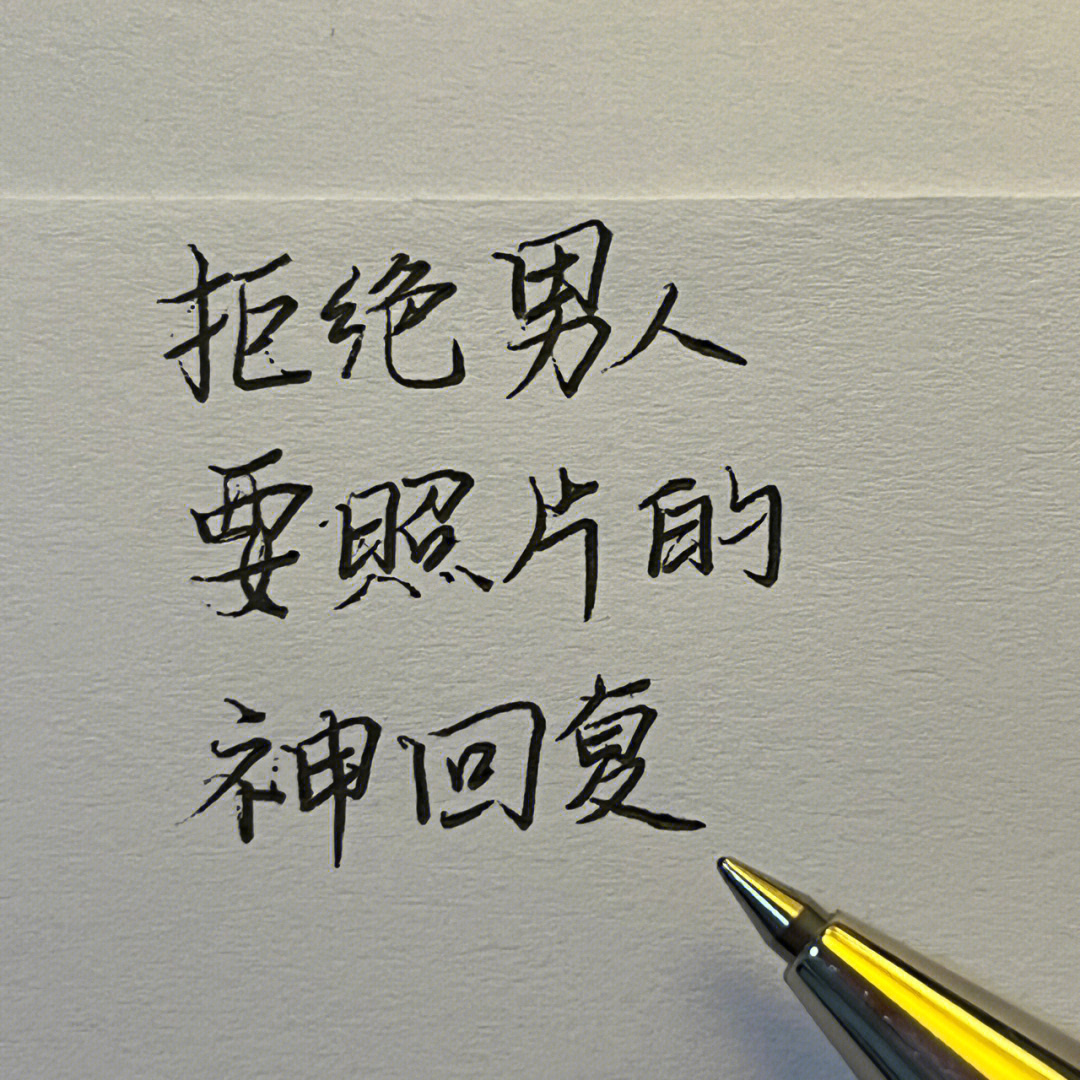 拒绝男人
要照片的
神回复